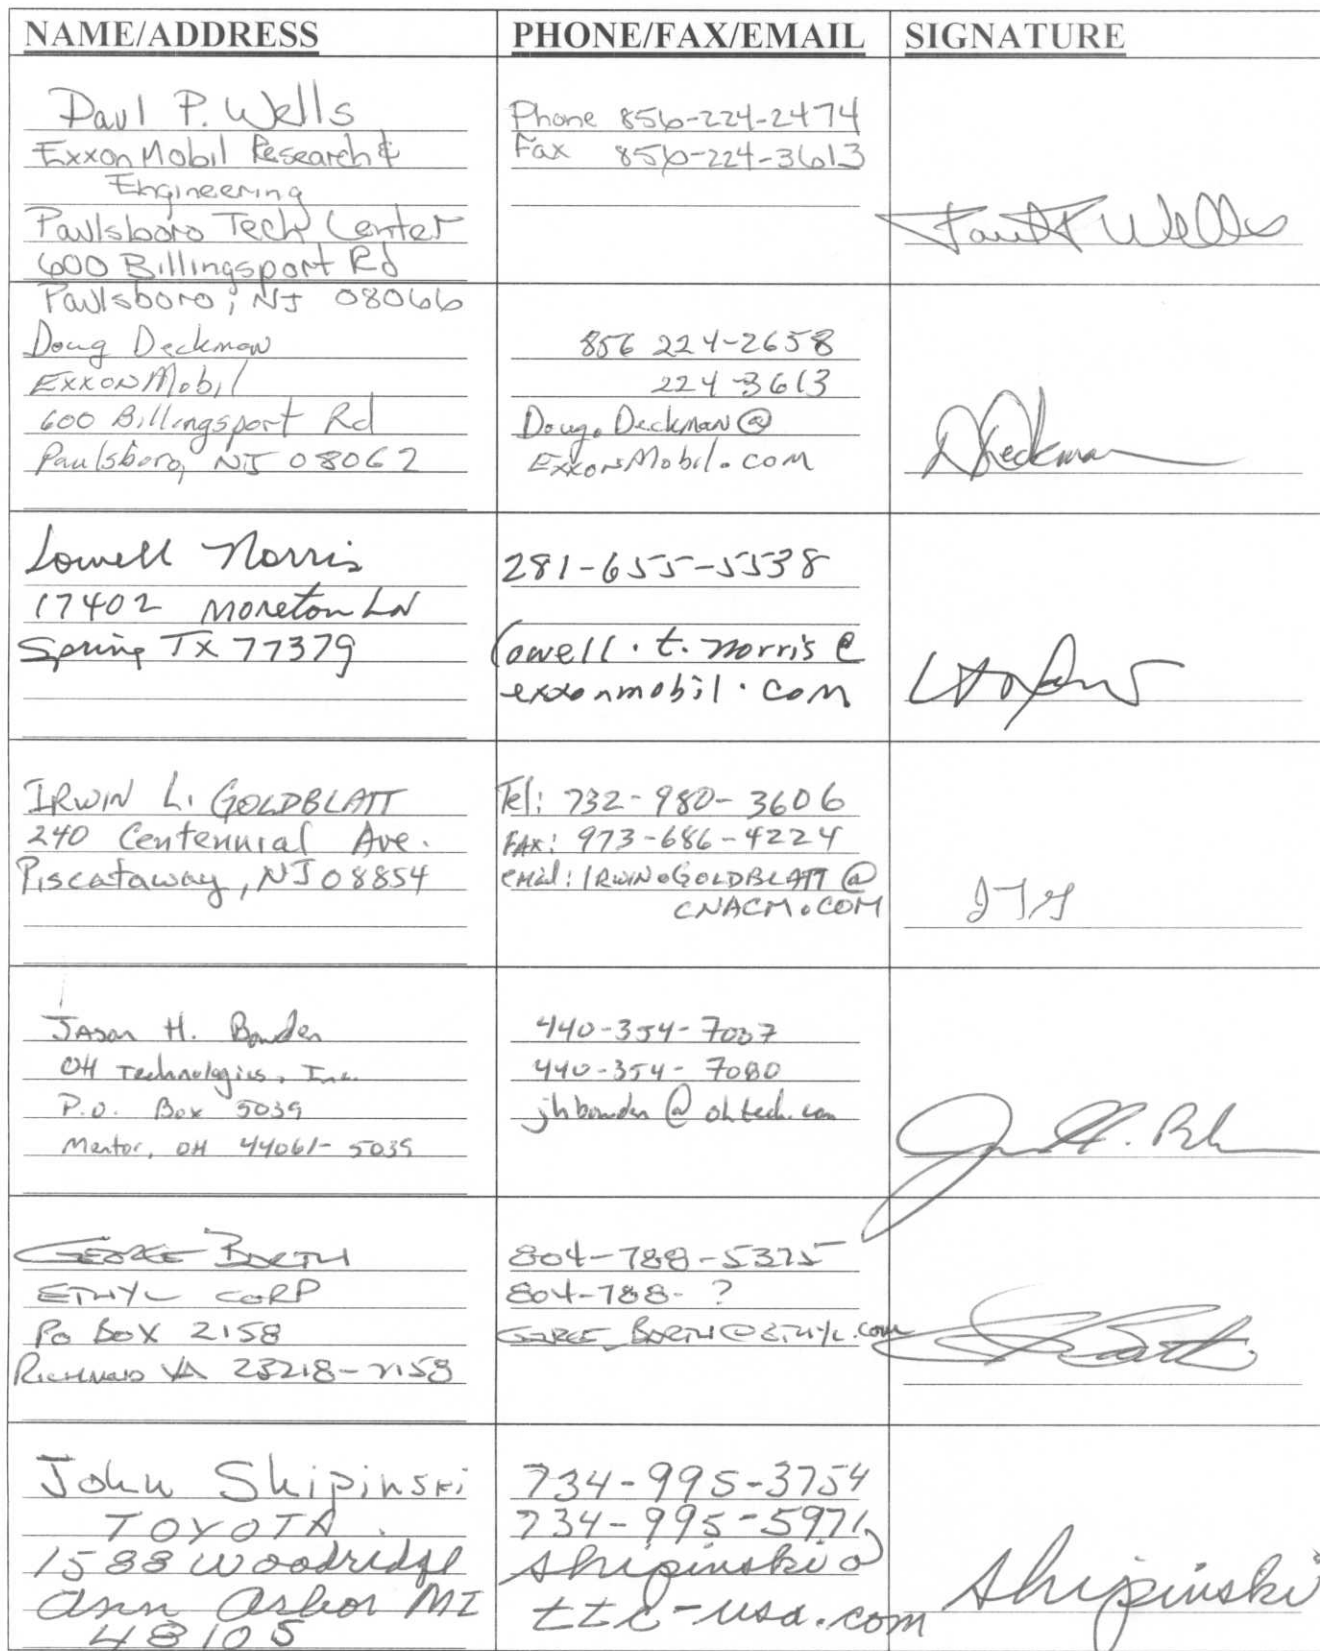 NAME/ADDRESS
PHONE/FAX/EMAIL
SIGNATURE
Paul P. Wells
ExxonMobil Research &
Engineering
Paulsboro Tech Center
600 Billingsport Rd
Paulsboro, NJ 08066
Phone 856-224-2474
Fax 856-224-3613
Doug Deckman
ExxonMobil
600 Billingsport Rd
Paulsboro, NJ 08062
856 224-2658
224-3613
Doug.Deckman@
ExxonMobil.com
DDeckman
Lowell Norris
17402 Moreton LN
Spring TX 77379
281-655-5538
lowell.t.norris@
exxonmobil.com
IRWIN L. GOLDBLATT
240 Centennial Ave.
Piscataway, NJ 08854
Tel: 732-980-3606
FAX: 973-686-4224
email: IRWIN.GOLDBLATT@
CNACM.COM
Jason H. Bowden
OH Technologies, Inc.
P.O. Box 5039
Mentor, OH 44061-5039
440-354-7007
440-354-7080
jhbowden@ohtech.com
GEORGE BORTH
ETHYL CORP
Po Box 2158
RICHMOND VA 23218-2158
804-788-5375
804-788-?
GEORGE_BORTH@ETHYL.com
John Shipinski
TOYOTA
1588 Woodridge
Ann Arbor MI
48105
734-995-3754
734-995-5971
shipinski@
ttc-usa.com
Shipinski